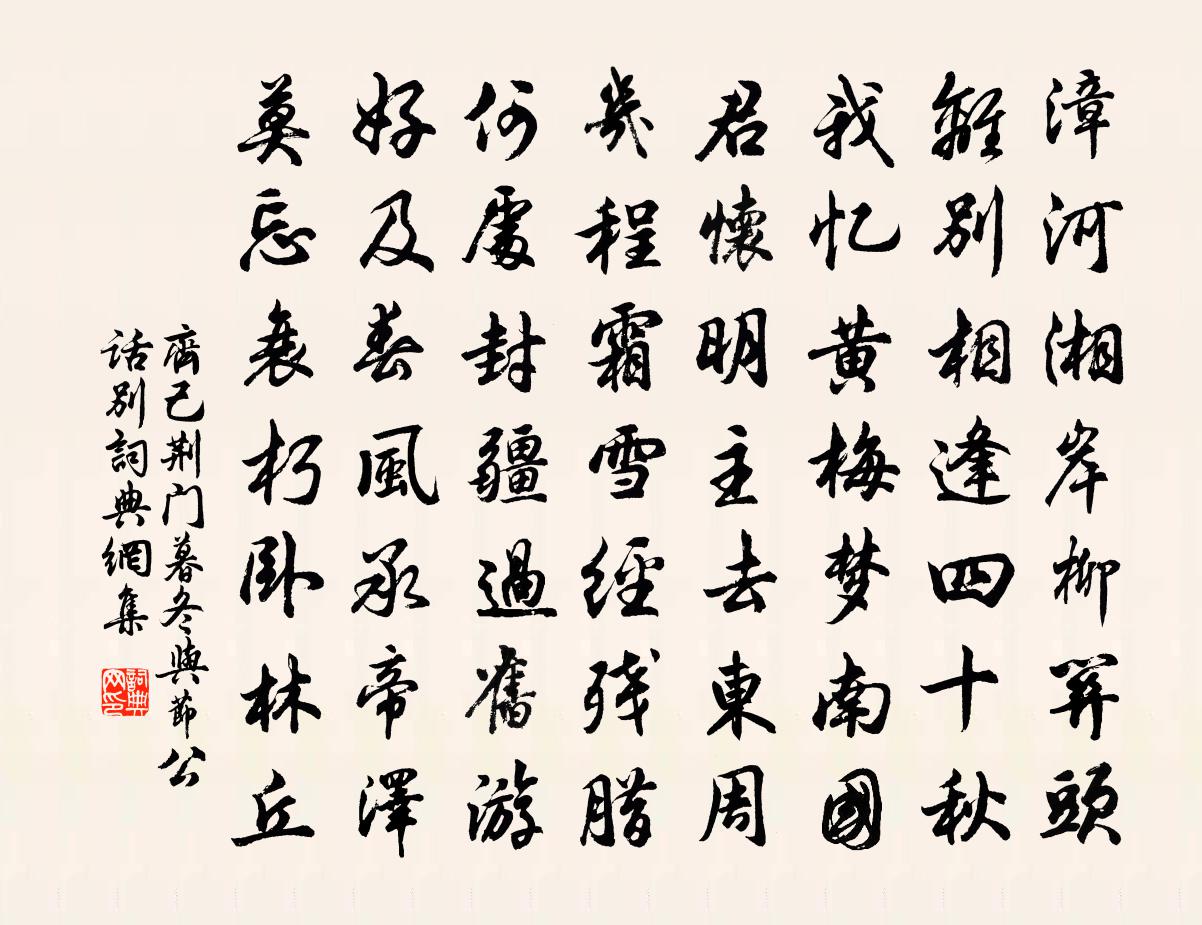 漳河湘岸柳關頭
離別相逢四十秋
我忆黄梅梦南國
君懷明主去東周
幾程霜雪經残腊
何處封疆過舊游
好及春風承帝澤
莫忘衰朽卧林丘
齊己荆门暮冬與節公
話別詞典網集
詞典网印